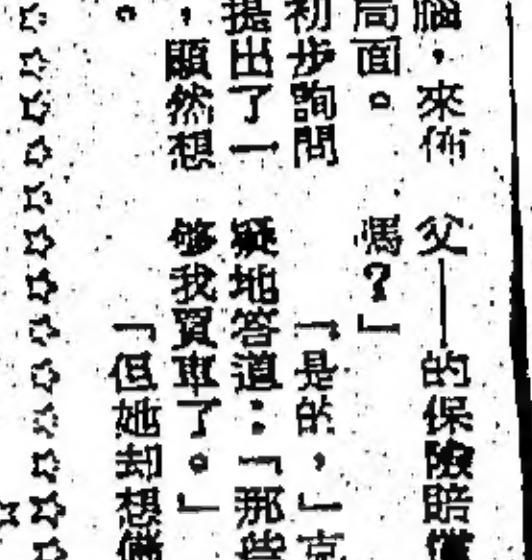 腦，來佈
局面。
初步詢問
提出了一
，顯然想
。
父——的保險賠償
嗎？」
「是的，」克
疑地答道：「那些
够我買車了。」
「但她却想